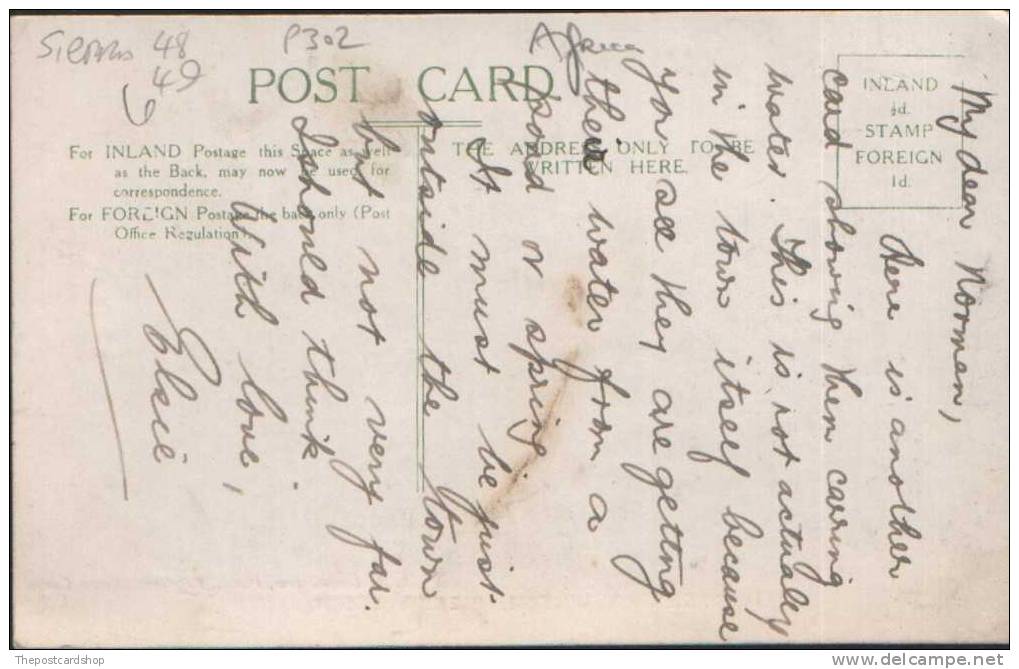 Sierra 48
49
6
P302
POST CARD
For INLAND Postage this Space as well
as the Back, may now be used for
correspondence.
For FOREIGN Postage the back only (Post
Office Regulation).
THE ADDRESS ONLY TO BE
WRITTEN HERE.
INLAND
½d.
STAMP
FOREIGN
1d.
My dear Noomen,
Here is another
card showing them carring
water. This is not actualey
in the town itself because
you see they are getting
their water from a
pond or spring
It must be just
outside the town
but not very far.
I should think.
With love,
Elsie
Thepostcardshop
www.delcampe.net